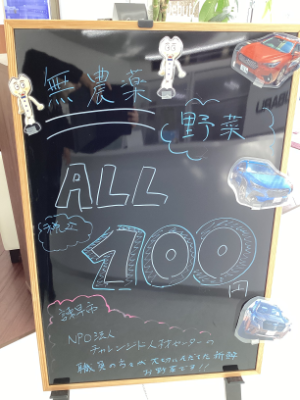 無農薬
野菜
ALL
100円
諫早市
NPO法人
チャレンジド人材センターの
職員の方々が大切に育てた新鮮
お野菜です!!